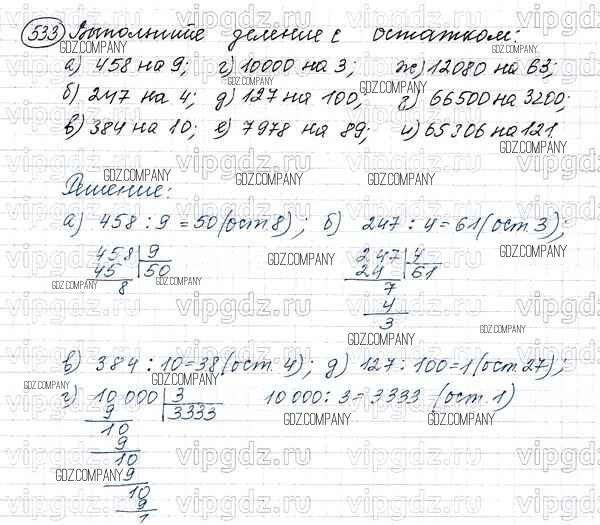 533 Выполните деление с остатком:
а) 458 на 9; г) 10000 на 3; ж) 12080 на 63;
б) 247 на 4; д) 127 на 100; г) 66500 на 3200;
в) 384 на 10; е) 7978 на 89; и) 65306 на 121.
Решение:
а) 458 : 9 = 50 (ост 8); б) 247 : 4 = 61 (ост. 3);
458 9
45 50
8
247 4
24 61
7
4
3
в) 384 : 10 = 38 (ост. 4); д) 127 : 100 = 1 (ост. 27);
г) 10 000 3 10 000 : 3 = 3333 (ост. 1)
9 3333
10
9
10
9
10
9
1
GDZ.COMPANY
vipgdz.ru